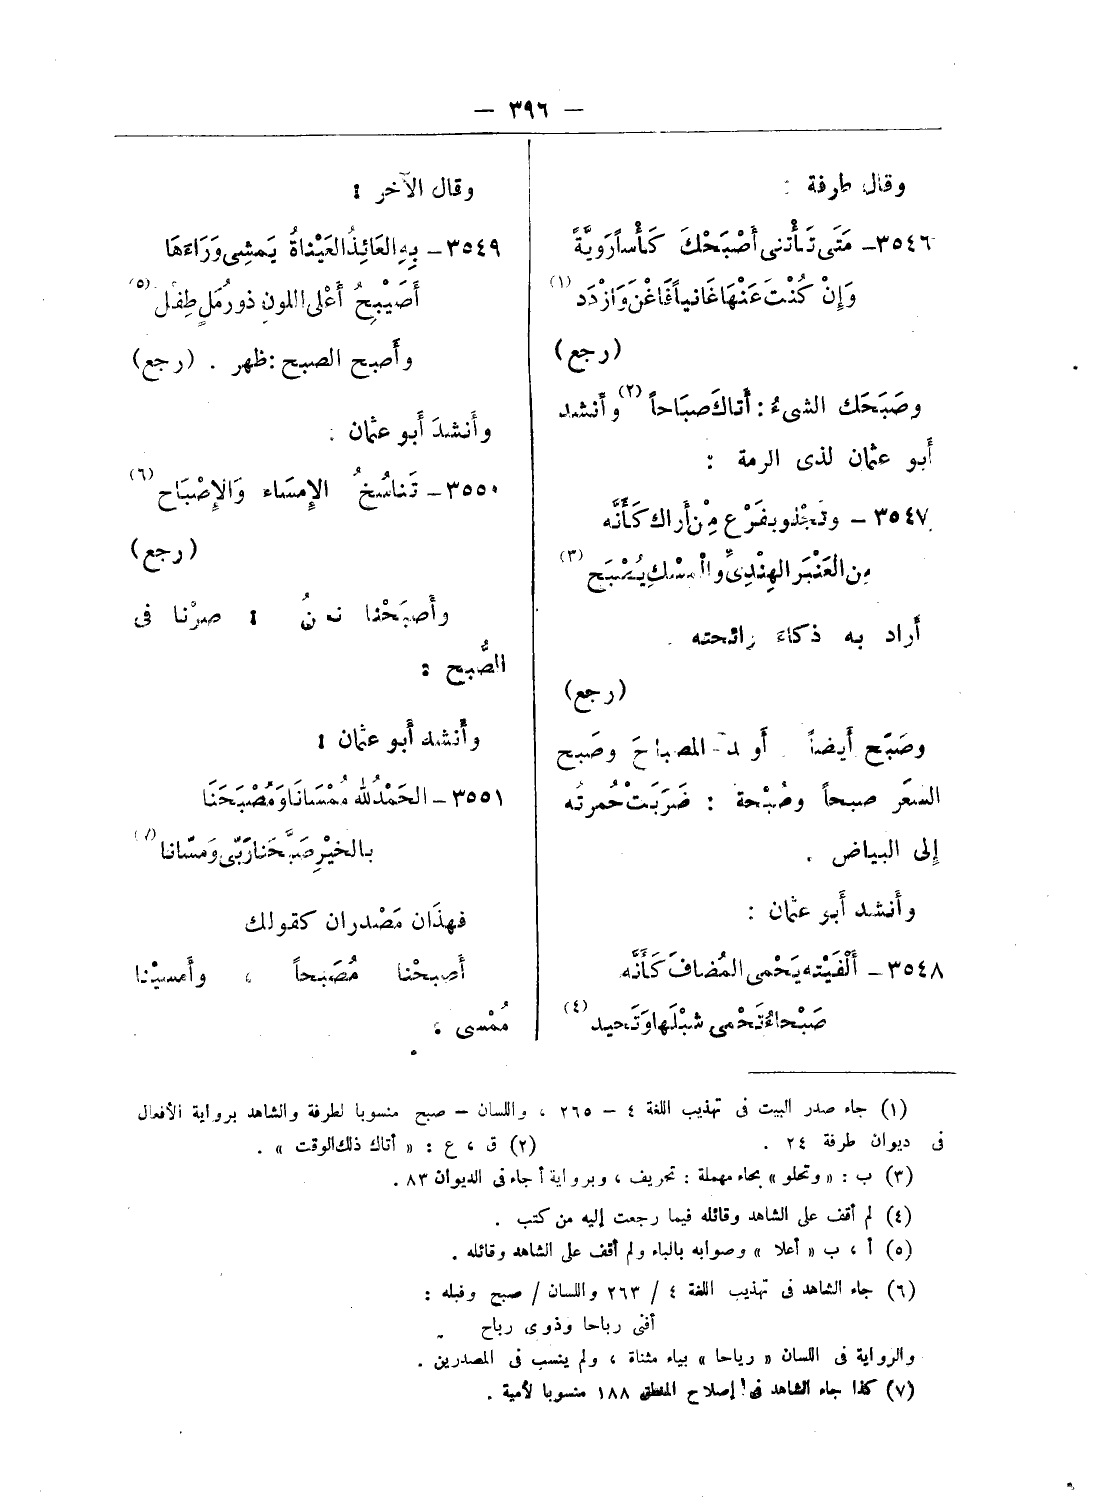 — ٣٩٦ —
وقال طرفة :
٣٥٤٦ـ مَتَى تَأْتنى أَصْبَحْكَ كَأْساً رَوِيَّةً
وَإِنْ كُنْتَ عَنْهَا غَانياً فَاغْنَ وَازْدَد (١)
(رجع)
وصَبَحَك الشىءُ : أَتاكَ صبَاحاً (٢) وأَنشد
أَبو عثمان لذى الرمة :
٣٥٤٧ـ وتجْذو بفَرْع مِنْ أَراك كَأَنَّه
مِن العَنْبَر الهِنْدِىِّ والمسْكِ يُصْبَح (٣)
أَراد به ذكاءَ رائحته .
(رجع)
وصَبَح أَيضاً أَوقد المصباحَ وصَبح
الشعَر صبحاً وصُبْحة : ضَرَبَتْ حُمرتُه
إِلى البياض .
وأَنشد أَبو عثمان :
٣٥٤٨ـ أَلْفَيْته يَحْمى المُضافَ كَأَنَّه
صَبْحاءُ تَحْمى شبْلَها وتَحيد (٤)
وقال الآخر :
٣٥٤٩ـ بِهِ العَائِذُ العَيْناءُ يَمشِى وَرَاءَهَا
أُصَيْبِحُ أَعْلى اللونِ ذو رُمَلٍ طِفْل (٥)
وأَصبح الصبح : ظهر . (رجع)
وأَنشدَ أَبو عثمان :
٣٥٥٠ـ تَناسُخُ الإِمسَاء وَالإِصْبَاح (٦)
(رجع)
وأَصبَحْنا نحنُ : صرْنا فى
الصُّبح :
وأَنشد أَبو عثمان :
٣٥٥١ـ الحَمْدُ لله مُمْسَانَا وَمُصْبَحَنَا
بالخيْرِ صَبَّحَنا رَبِّى وَمسّانا (٧)
فهذَان مَصْدران كقولك
أَصبحْنا مُصَبحاً ، وأَمسيْنا
مُمْسى .
(١) جاء صدر البيت فى تهذيب اللغة ٤ – ٢٦٥ ، واللسان – صبح منسوبا لطرفة والشاهد برواية الأفعال
فى ديوان طرفة ٢٤ . (٢) ق ، ع : « أتاك ذلك الوقت » .
(٣) ب : « وتحلو » بحاء مهملة : تحريف ، وبرواية أ جاء فى الديوان ٨٣ .
(٤) لم أقف على الشاهد وقائله فيما رجعت إليه من كتب .
(٥) أ ، ب « أعلا » وصوابه بالياء ولم أقف على الشاهد وقائله .
(٦) جاء الشاهد فى تهذيب اللغة ٤ / ٢٦٣ واللسان / صبح وقبله :
أفنى رباحا وذوى رباح
والرواية فى اللسان « رياحا » بياء مثناة ، ولم ينسب فى المصدرين .
(٧) كذا جاء الشاهد فى إصلاح المنطق ١٨٨ منسوبا لأمية .